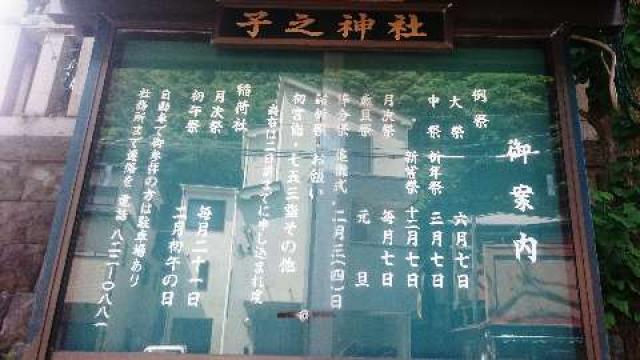 子之神社
御案内
例祭
大祭 六月七日
中祭 祈年祭 三月七日
新嘗祭 十二月七日
月次祭 毎月七日
歳旦祭 元旦
節分祭 追儺式 二月三(四)日
祈祷祭 お祓い
初宮詣・七五三望その他
二日前までに申し込まれ度
稲荷社
月次祭 毎月二十一日
初午祭 二月初午の日
自動車で御参拝の方は駐車場あり
社務所まで連絡を 電話 八二二-〇八八一